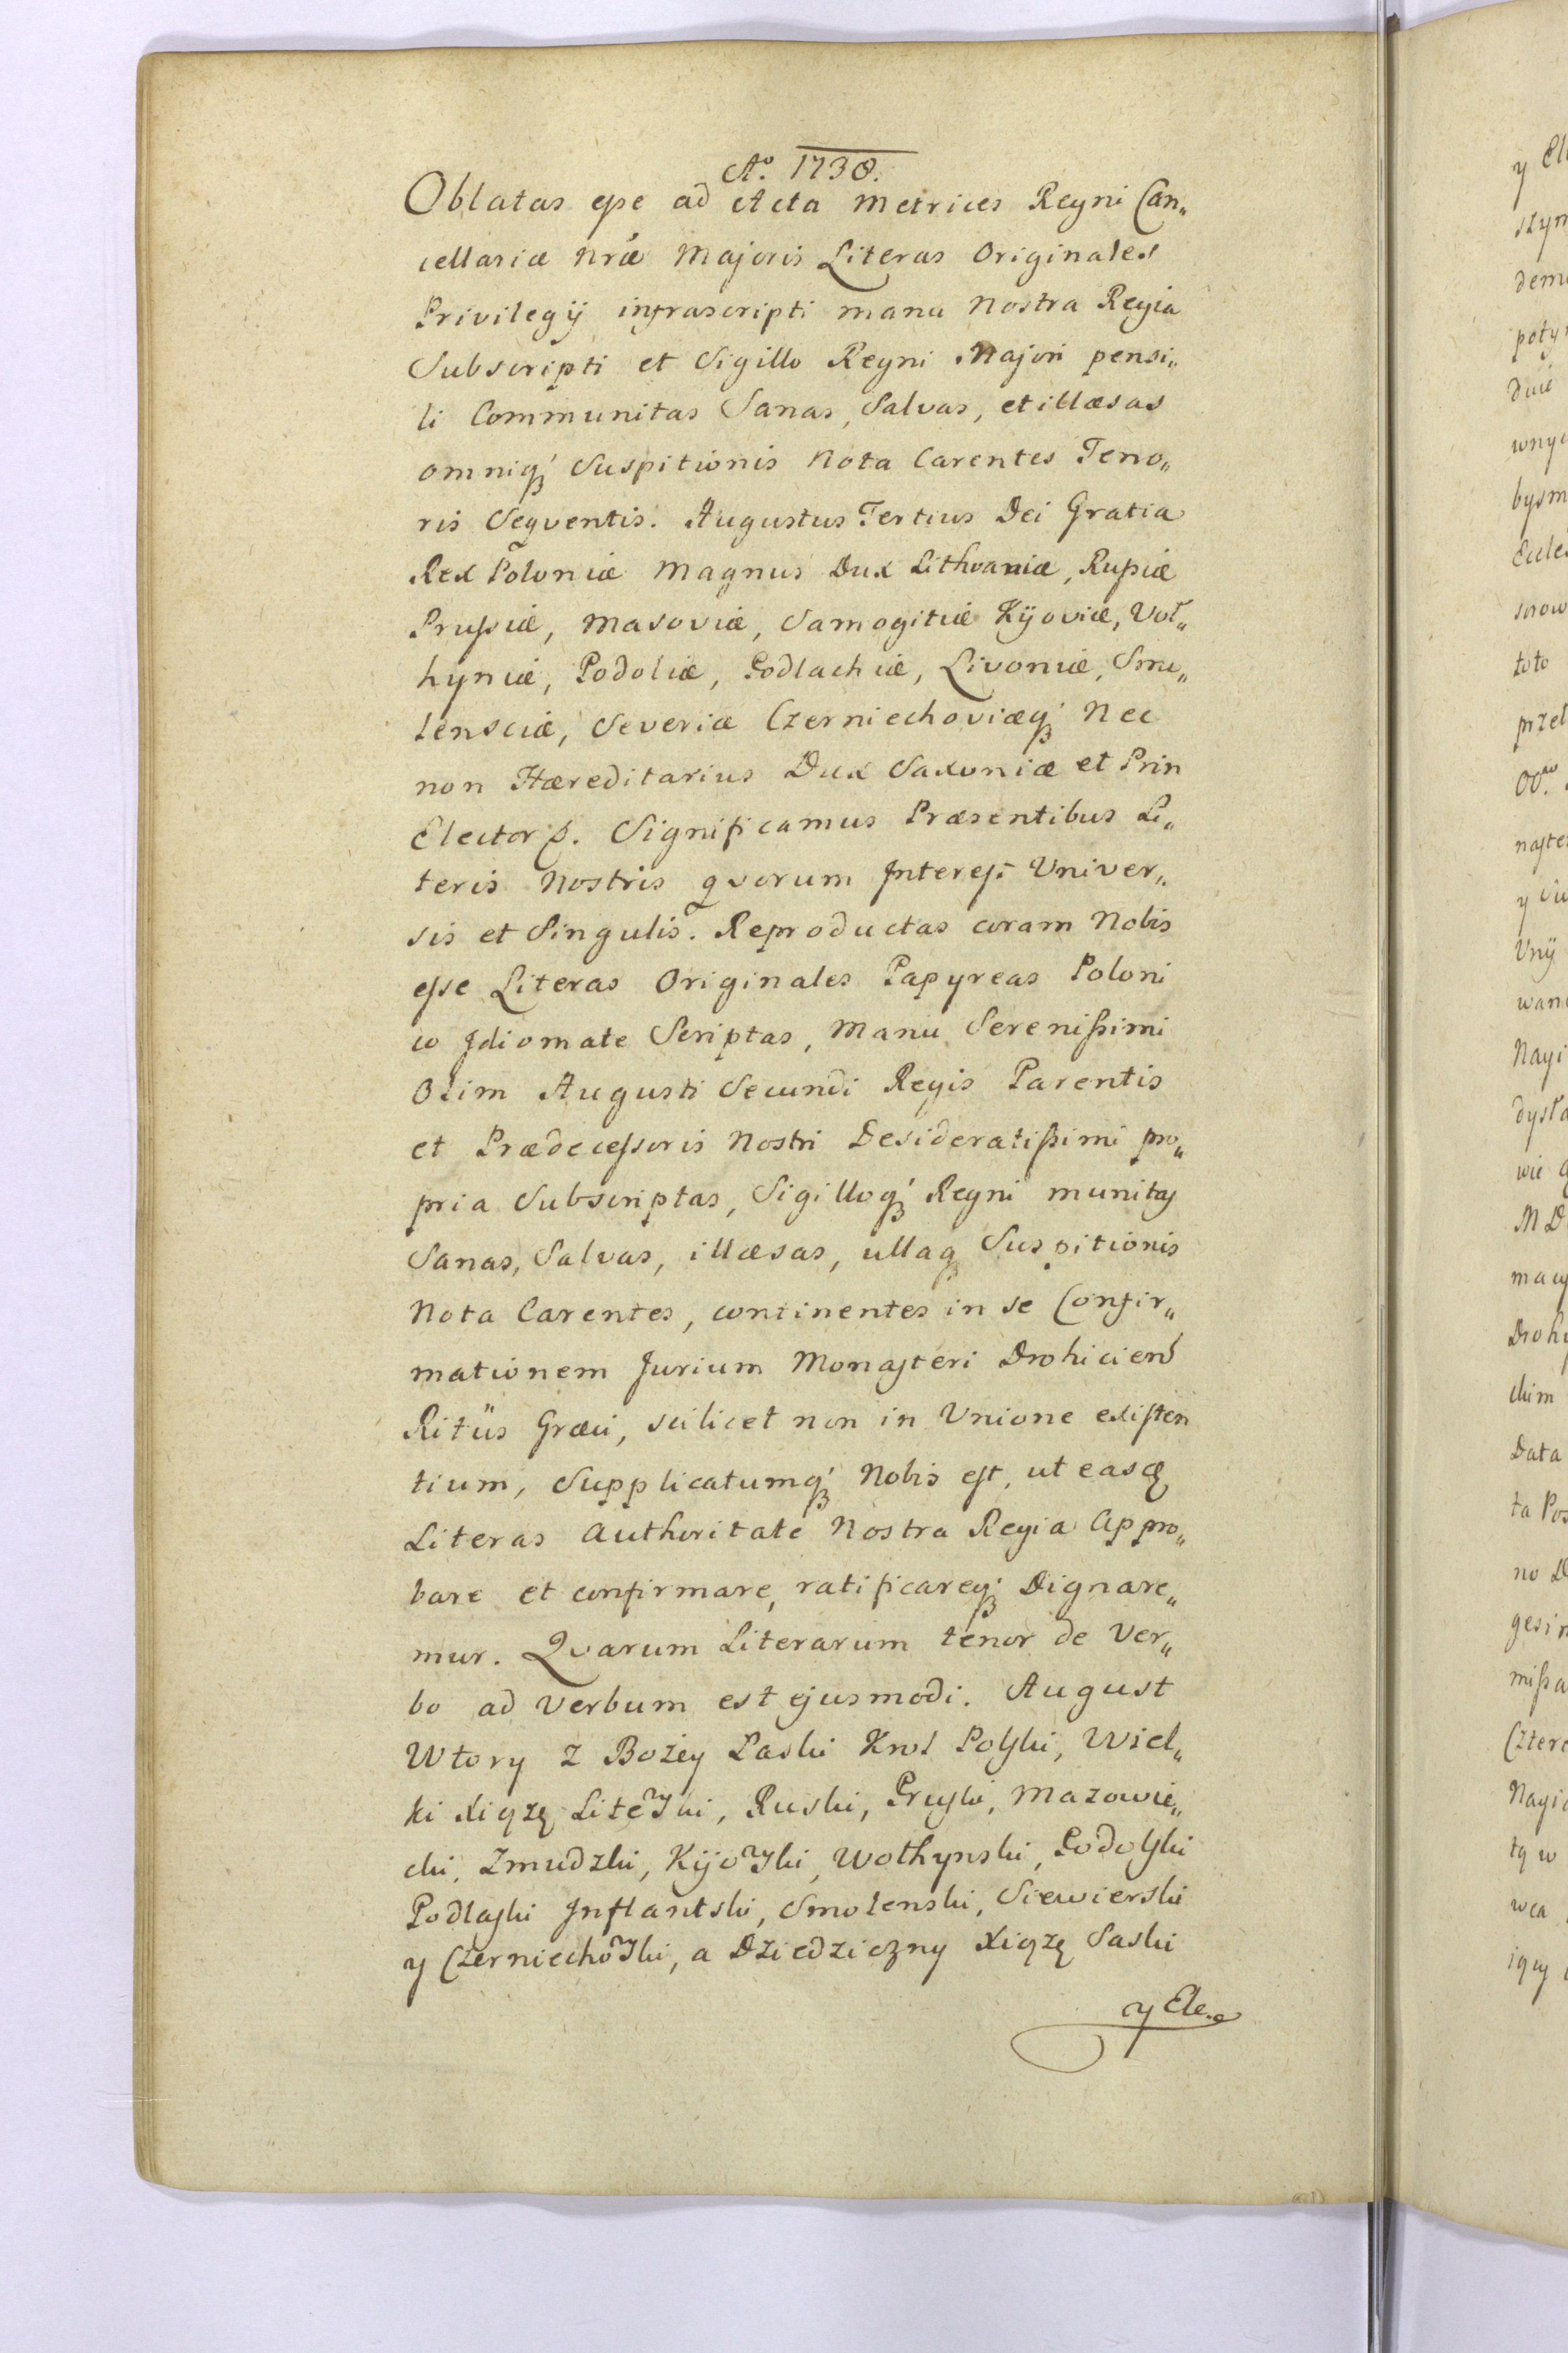 Aº. 1738.
Oblatas esse ad Acta Metrices Regni Can„
cellariæ nræ Majoris Literas Originales
Privilegÿ infrascripti manu Nostra Regia
Subscripti et Sigillo Regni Majori pensi„
li Communitas Sanas, Salvas, et illæsas
omniq́ Suspitionis Nota Carentes Teno„
ris Seqventis. Augustus Tertius Dei Gratia
Rex Poloniæ Magnus Dux Lithvaniæ, Russiæ
Prussiæ, Masoviæ, Samogitiæ Kÿoviæ, Vol„
hyniæ, Podoliæ, Podlachiæ, Livoniæ, Smo„
lensciæ, Severiæ Czerniechoviæq́ Nec
non Hæreditarius Dux Saxoniæ et Prin
Elector p. Significamus Præsentibus Li„
teris Nostris qvorum Interest Univer„
sis et Singulis. Reproductas coram Nobis
esse Literas Originales Papyreas Poloni
co Idiomate Scriptas, Manu Serenissimi
Olim Augusti Secundi Regis Parentis
et Prædecessoris Nostri Desideratissimi pro„
pria Subscriptas, Sigilloq́ Regni munitas
Sanas, Salvas, illæsas, ullaq Suspitionis
Nota Carentes, continentes in se Confir„
mationem Jurium Monasteri Drohiciens
Ritüs Græci, scilicet non in Unione existen
tium, Supplicatumq́ Nobis est, ut easq
Literas Authoritate Nostra Regia Appro„
bare et confirmare, ratificareq́ Dignare„
mur. Qvarum Literarum tenor de Ver„
bo ad Verbum est ejusmodi. August
Wtory z Bożey Łaski Krol Polski, Wiel„
ki Xiąże Lite~ski, Ruski, Pruski, Mazowie„
cki, Zmudzki, Kijo~ski, Wołhynski, Podolski
Podlaski Inflantski, Smolenski, Siewierski
y Czerniecho~ski, a Dziedziczny Xiążę Saski
y Ele.
y El
szym
dem
poty
dnie
wnyc
bysm
Eccle
toto
przeł
Unÿ
wan
Nayi
dysta
wie
MD
Droh
chim
Data
ta Pos
no D
gesi
missa
Cztero
Nayi
tą w
wca